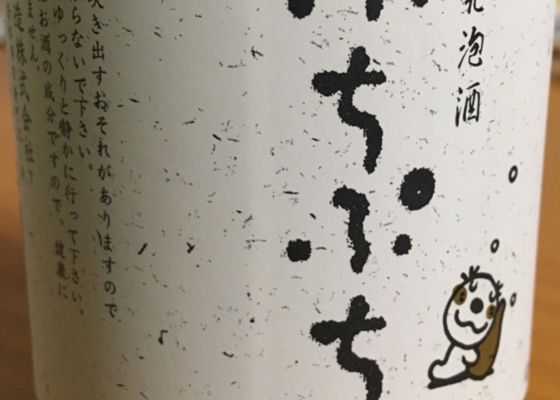 泡酒
ぷちぷち
き出すおそれがありますので
らないで下さい。
ゆっくりと静かに行って下さい。
お酒の成分ですので、健康に
ません。
造株式会社